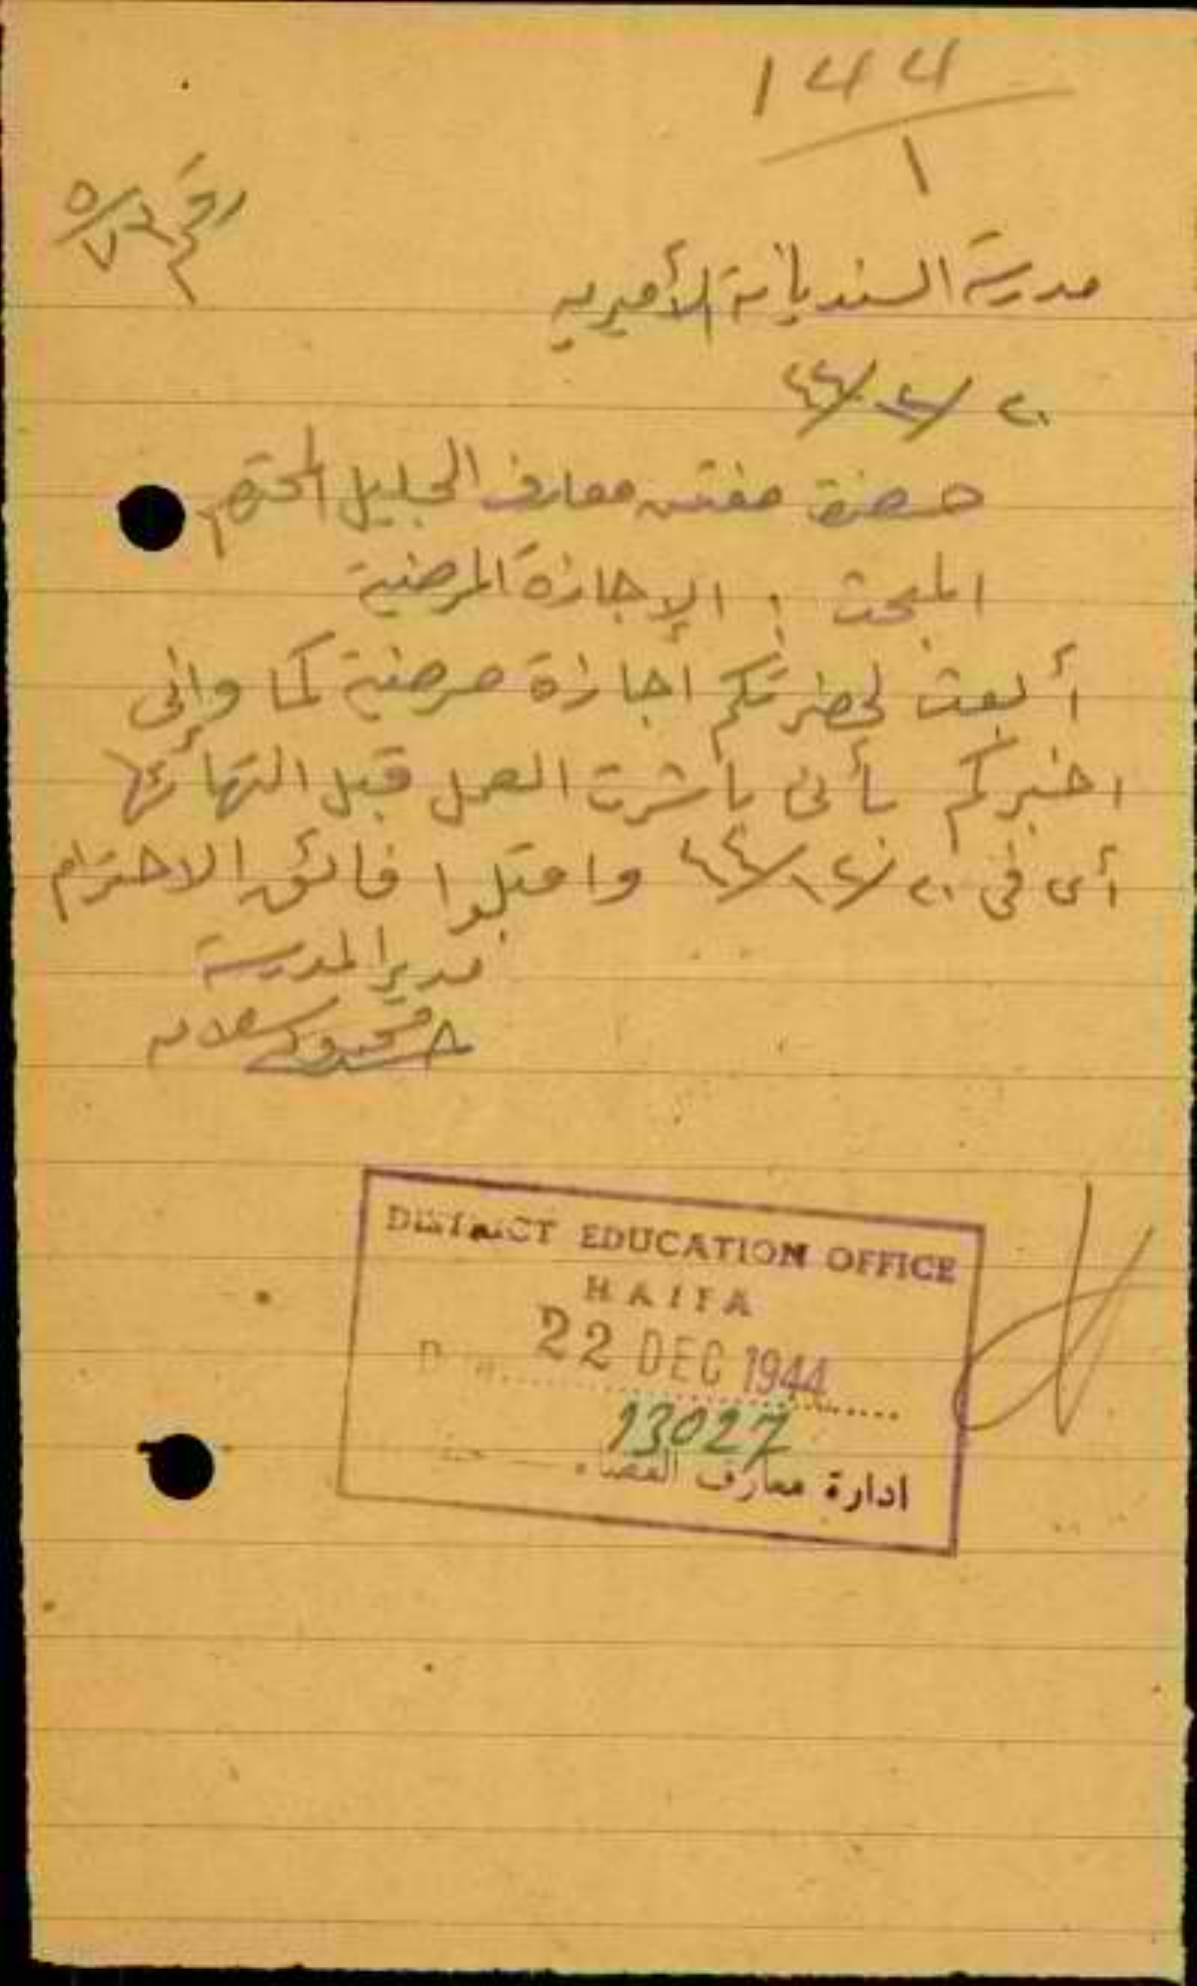 144
1
رقم ٥/٧٦
مدرسة السنديانة الأميرية
٢٠/١٢/٤٤
حضرة مفتش معارف الجليل المحترم
المبحث : الإجازة المرضية
أبعث لحضرتكم اجازة مرضية كما وإني
اخبركم بأني باشرت العمل قبل انتهائها
أي في ٢٠/١٢/٤٤ واقبلوا فائق الاحترام
مدير المدرسة
DISTRICT EDUCATION OFFICE
HAIFA
22 DEC 1944
13027
ادارة معارف القضاء